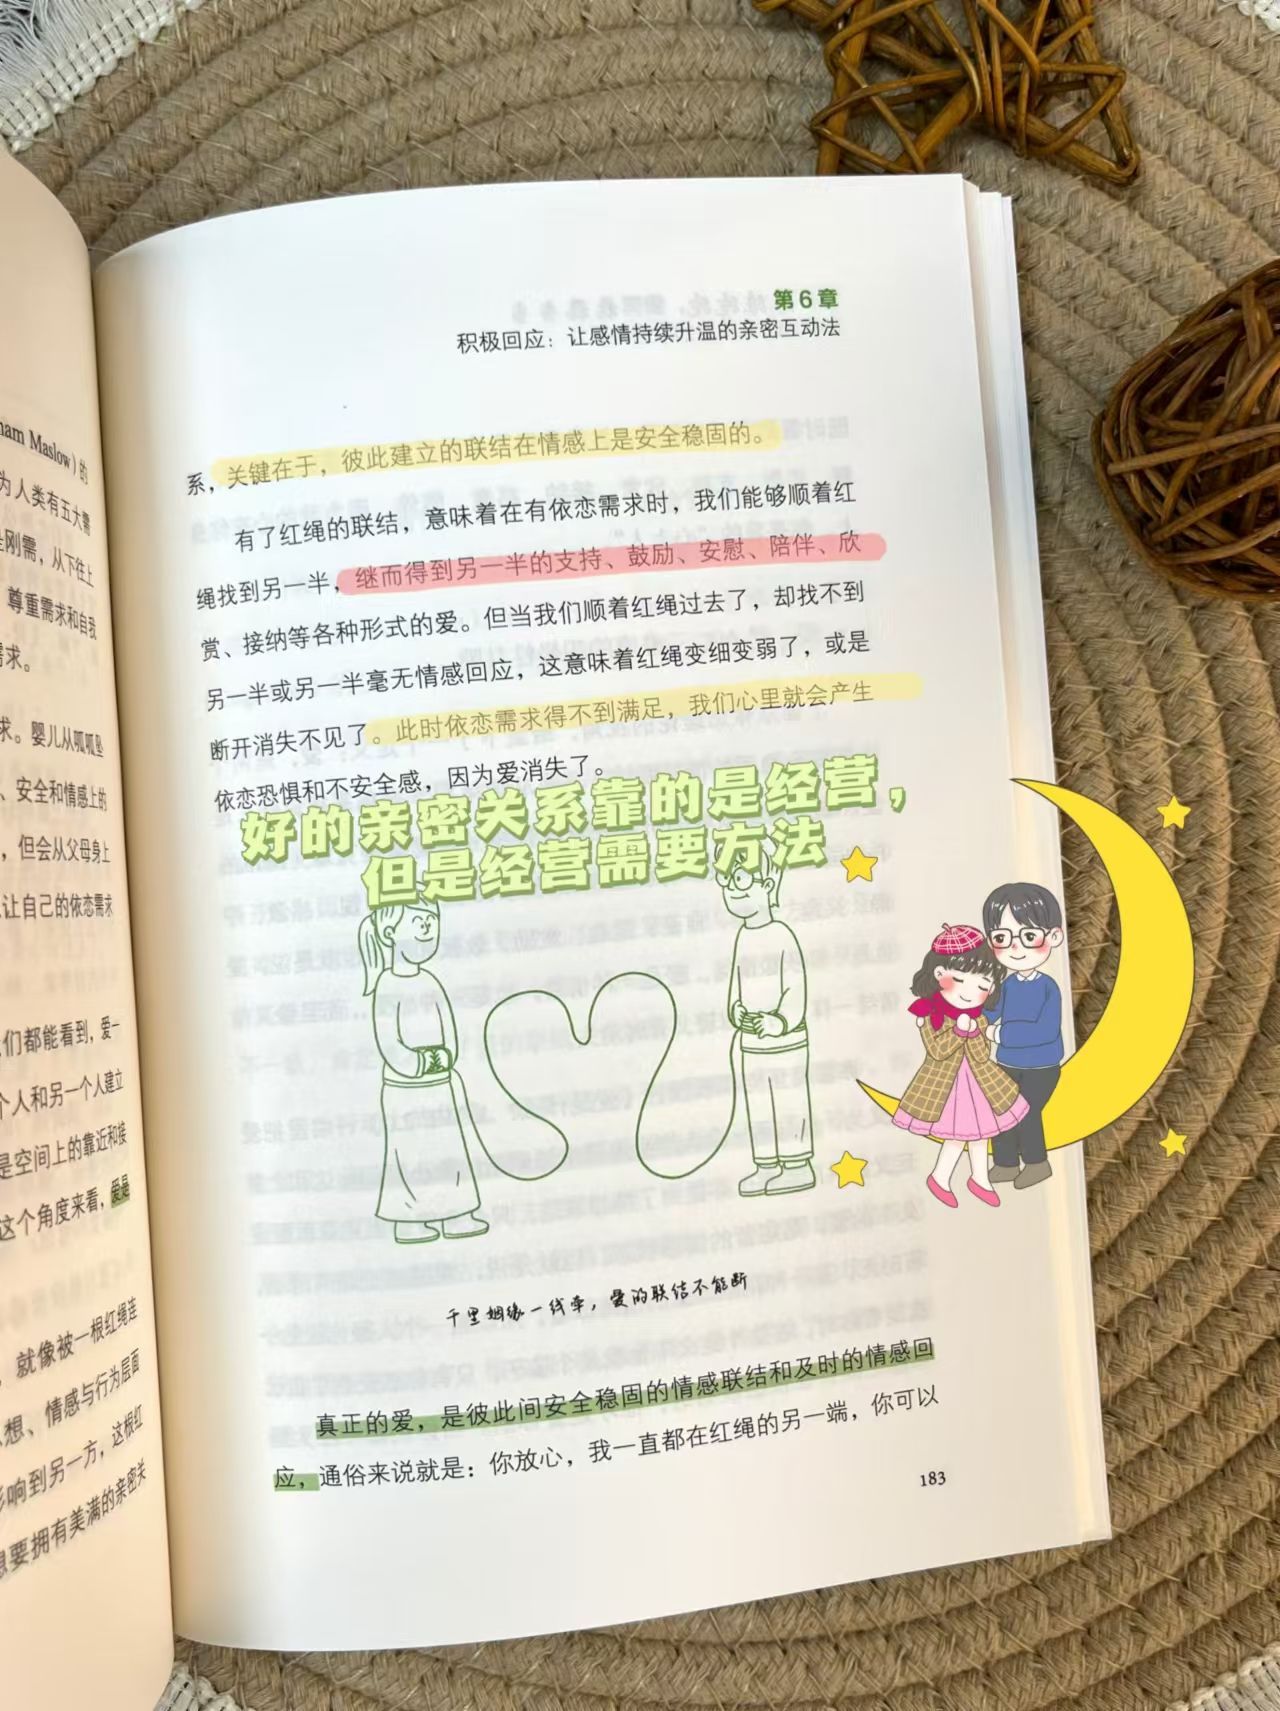 ham Maslow）的
为人类有五大需
是刚需，从下往上
尊重需求和自我
需求。
求。婴儿从呱呱坠
、安全和情感上的
，但会从父母身上
让自己的依恋需求
们都能看到，爱一
个人和另一个人建立
是空间上的靠近和接
这个角度来看，爱是
，就像被一根红绳连
想、情感与行为层面
影响到另一方，这根红
想要拥有美满的亲密关
第6章
积极回应：让感情持续升温的亲密互动法
系，关键在于，彼此建立的联结在情感上是安全稳固的。
有了红绳的联结，意味着在有依恋需求时，我们能够顺着红
绳找到另一半，继而得到另一半的支持、鼓励、安慰、陪伴、欣
赏、接纳等各种形式的爱。但当我们顺着红绳过去了，却找不到
另一半或另一半毫无情感回应，这意味着红绳变细变弱了，或是
断开消失不见了。此时依恋需求得不到满足，我们心里就会产生
依恋恐惧和不安全感，因为爱消失了。
好的亲密关系靠的是经营，
但是经营需要方法
千里姻缘一线牵，爱的联结不能断
真正的爱，是彼此间安全稳固的情感联结和及时的情感回
应，通俗来说就是：你放心，我一直都在红绳的另一端，你可以
183